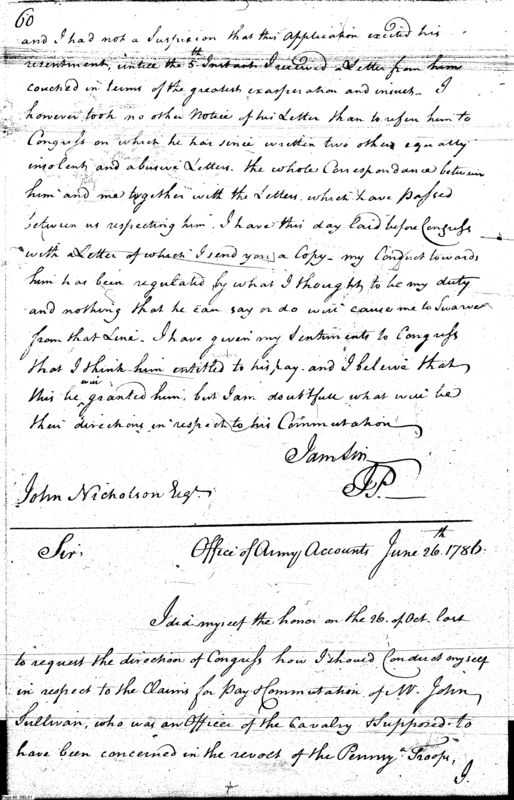 60
and I had not a Suspicion that this Application excited his
resentment, untill the 5th Instant. I received a Letter from him
couched in terms of the greatest exasperation and insult. I
however took no other Notice of his Letter than to refer him to
Congress on which he has since written two other equally
insolent and abusive Letters. the whole Correspondance between
him and me together with the Letters which have passed
between us respecting him, I have this day laid before Congress
with a Letter of which I send you a Copy – my Conduct towards
him has been regulated by what I thought to be my duty
and nothing that he can say or do will cause me to Swarve
from that Line. I have given my Sentiments to Congress
that I think him entitled to his pay. and I beleive that
this will be granted him, but I am doubtfull what will be
their directions in respect to his Commutation
I am Sir
JP.
John Nicholson Esqr.
Sir. Office of Army Accounts June 26th. 1786.
I did myself the honor on the 26. of Oct. last
to request the direction of Congress how I should Conduct myself
in respect to the Claims for Pay & Commutation of Mr. John
Sullivan, who was an Officer of the Cavalry & Supposed to
have been concerned in the revolt of the Pennya. Troops,
I.